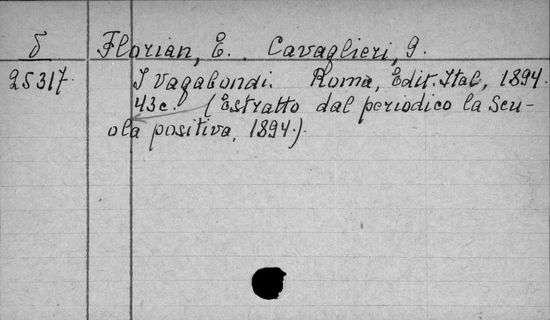 δ Florian, E. Cavaglieri, G.
25317. I Vagabondi. Roma, Edit. Ital., 1894.
43 c. (Estratto dal periodico la Scu-
ola positiva, 1894.)